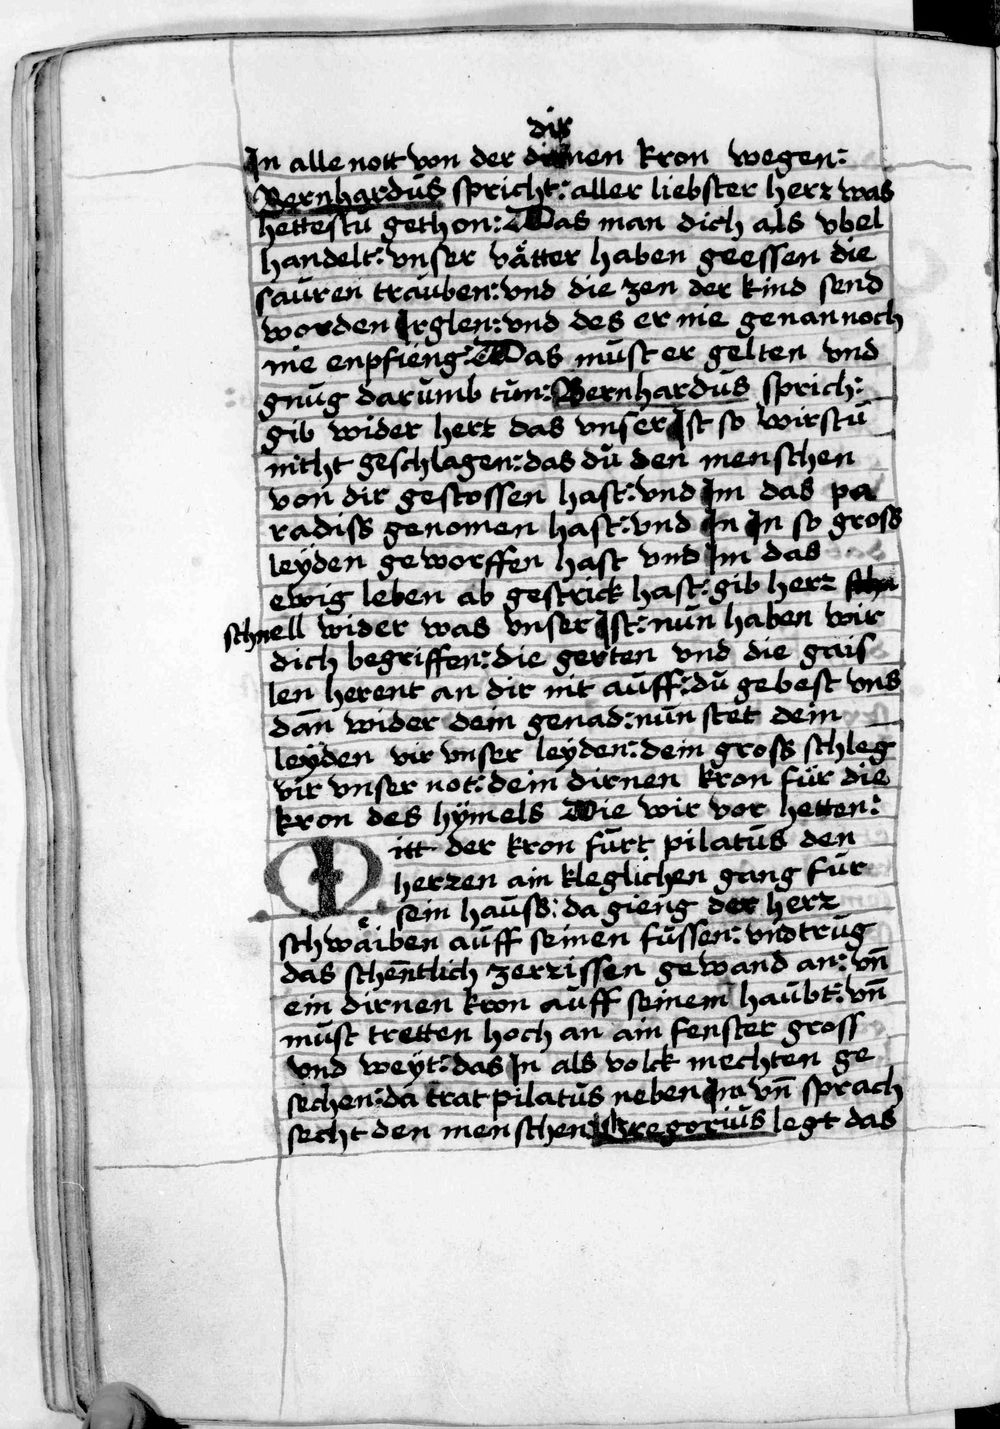 dir
In alle nott von der dirnen kron wegen:
Bernhardus spricht: aller liebster herr was
hettestu gethon: Das man dich als vbel
handelt: vnser vätter haben geessen die
sauren trauben: vnd die zen der kind send
worden Irglen: vnd des er nie genan noch
nie enpfieng: Das must er gelten vnd
gnug darumb tun: Bernhardus sprich:
gib wider herr das vnser Ist so wirstu
nitht geschlagen: das du den menschen
von dir gestossen hast: vnd Im das pa
radiss genomen hast: vnd In In so gross
leyden geworffen hast vnd Im das
ewig leben ab gestrick hast: gib herr
schnell wider was vnser Ist: nun haben wir
dich begriffen: die gerten vnd die gais
len herent an dir nit auff: du gebest vns
dan̄ wider dein genad: nun stet dein
leyden vir vnser leyden: dein gross schleg
vir vnser not: dein dirnen kron für die
kron des hÿmels Die wir vor hetten:
Mitt der kron furt pilatus den
herren ain kleglichen gang für
sein hauss: da gieng der herr
schwaͤiben auff seinen fussen: vnd trug
das schentlich zerrissen gewand an: vn̄
ein dirnen kron auff seinem haubt: vn̄
must tretten hoch an ain fenster gross
vnd weyt: das In als volck mechten ge
sechen: da trat pilatus neben Im vn̄ sprach
secht den menschen: Gregorius legt das